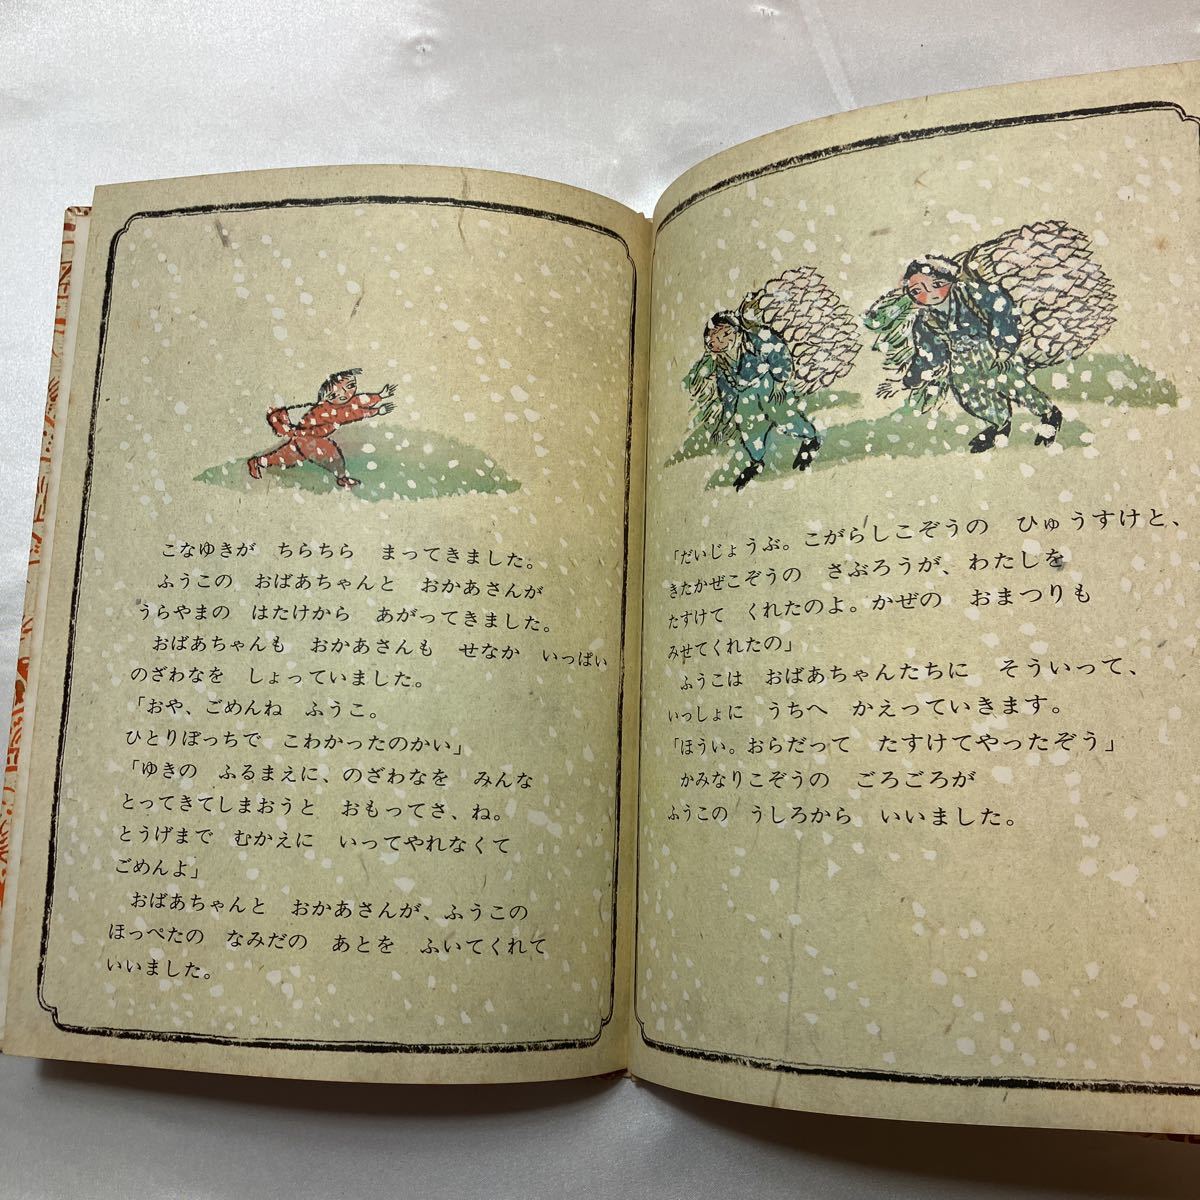 こなゆきが　ちらちら　まってきました。
ふうこの　おばあちゃんと　おかあさんが
うらやまの　はたけから　あがってきました。
おばあちゃんも　おかあさんも　せなか　いっぱい
のざわなを　しょっていました。
「おや、ごめんね　ふうこ。
ひとりぼっちで　こわかったのかい」
「ゆきの　ふるまえに、のざわなを　みんな
とってきてしまおうと　おもってさ、ね。
とうげまで　むかえに　いってやれなくて
ごめんよ」
おばあちゃんと　おかあさんが、ふうこの
ほっぺたの　なみだの　あとを　ふいてくれて
いいました。
「だいじょうぶ。こがらしこぞうの　ひゅうすけと、
きたかぜこぞうの　さぶろうが、わたしを
たすけて　くれたのよ。かぜの　おまつりも
みせてくれたの」
ふうこは　おばあちゃんたちに　そういって、
いっしょに　うちへ　かえっていきます。
「ほうい。おらだって　たすけてやったぞう」
かみなりこぞうの　ごろごろが
ふうこの　うしろから　いいました。